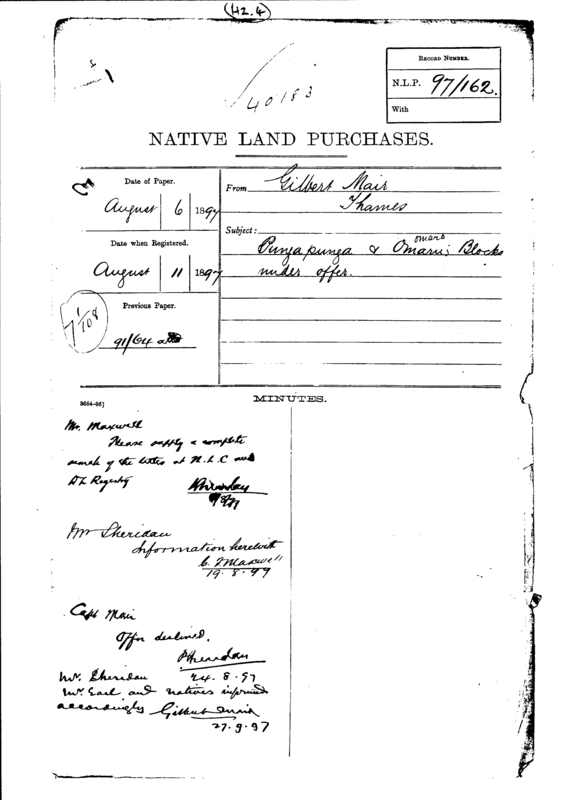 (H2.4)
40183
RECORD NUMBER.
N.L.P. 97/162.
With
NATIVE LAND PURCHASES.
Date of Paper.
August 6 1897
Date when Registered.
August 11 1897
Previous Paper.
91/64
7 1/108
From Gilbert Mair
Thames
Subject:
omaro
Pungapunga & Omarui Blocks
under offer.
MINUTES.
Mr. Maxwell
Please supply a complete
search of the titles at N.L.C and
D L Registry
PSheridan
Mr Sheridan
Information herewith
C. Maxwell
19.8.97
Capt Mair
Offer declined.
PSheridan
24.8.97
Mr. Sheridan
Mr. Earl and natives informed
accordingly Gilbert Mair
27.9.97